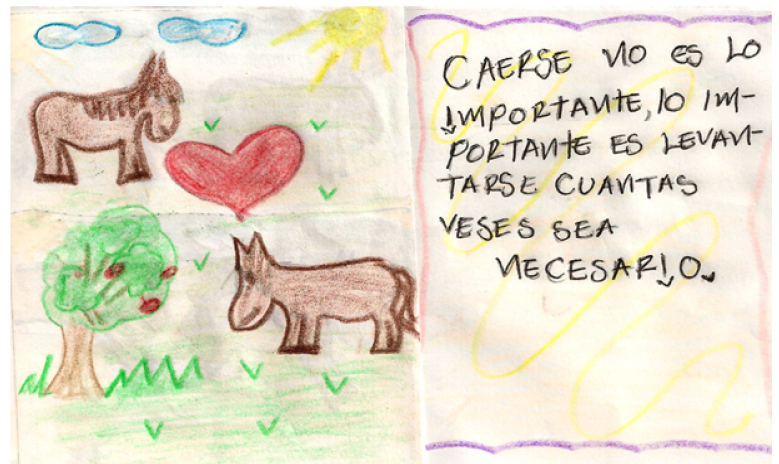 CAERSE NO ES LO
IMPORTANTE, lO IM-
PORTANTE ES LEVAN-
TARSE CUANTAS
VESES SEA
NECESARIO.